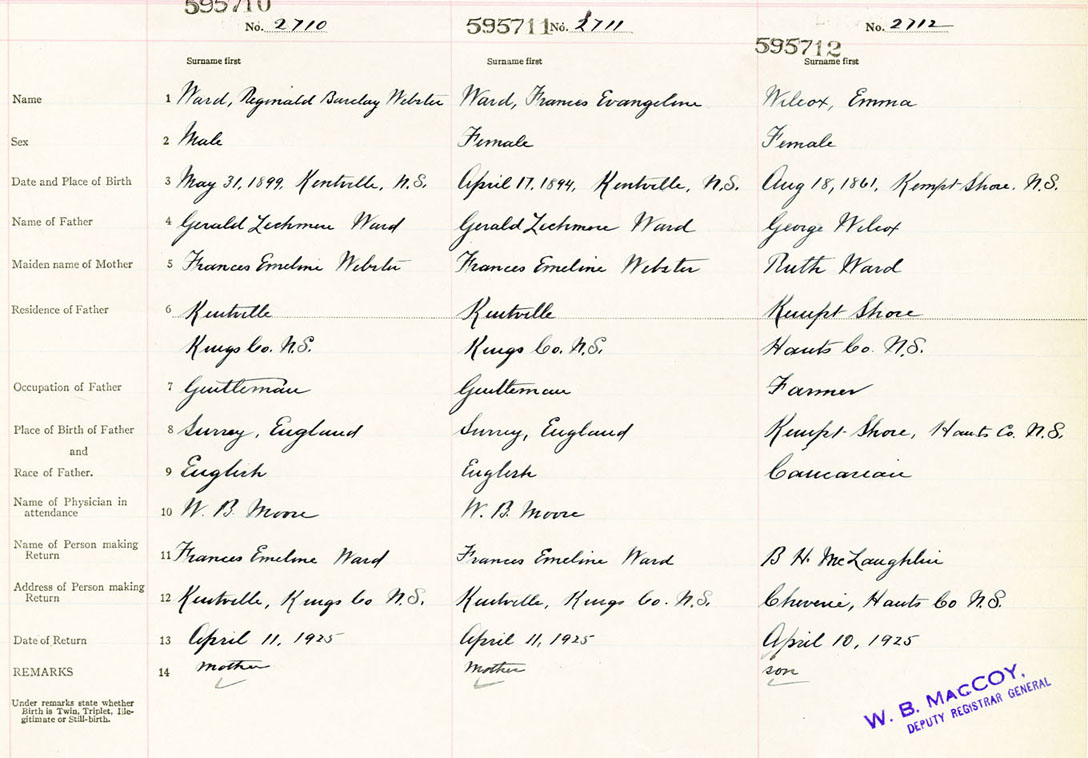 595710 No. 2710 595711 No. 2711 595712 No. 2712
Surname first Surname first Surname first
Name 1 Ward, Reginald Barclay Webster Ward, Frances Evangeline Wilcox, Emma
Sex 2 Male Female Female
Date and Place of Birth 3 May 31, 1899, Kentville, N.S. April 17, 1894, Kentville, N.S. Aug 18, 1861, Kempt Shore. N.S.
Name of Father 4 Gerald Lechmere Ward Gerald Lechmere Ward George Wilcox
Maiden name of Mother 5 Frances Emeline Webster Frances Emeline Webster Ruth Ward
Residence of Father 6 Kentville Kentville Kempt Shore
Kings Co. N.S. Kings Co. N.S. Hants Co. N.S.
Occupation of Father 7 Gentleman Gentleman Farmer
Place of Birth of Father 8 Surrey, England Surrey, England Kempt Shore, Hants Co. N.S.
and
Race of Father. 9 English English Caucasian
Name of Physician in attendance 10 W. B. Moore W. B. Moore
Name of Person making Return 11 Frances Emeline Ward Frances Emeline Ward B H. McLaughlin
Address of Person making Return 12 Kentville, Kings Co N.S. Kentville, Kings Co. N.S. Cheverie, Hants Co N.S.
Date of Return 13 April 11, 1925 April 11, 1925 April 10, 1925
REMARKS 14 mother mother son
Under remarks state whether
Birth is Twin, Triplet, Ille-
gitimate or Still-birth.
W. B. MACCOY,
DEPUTY REGISTRAR GENERAL